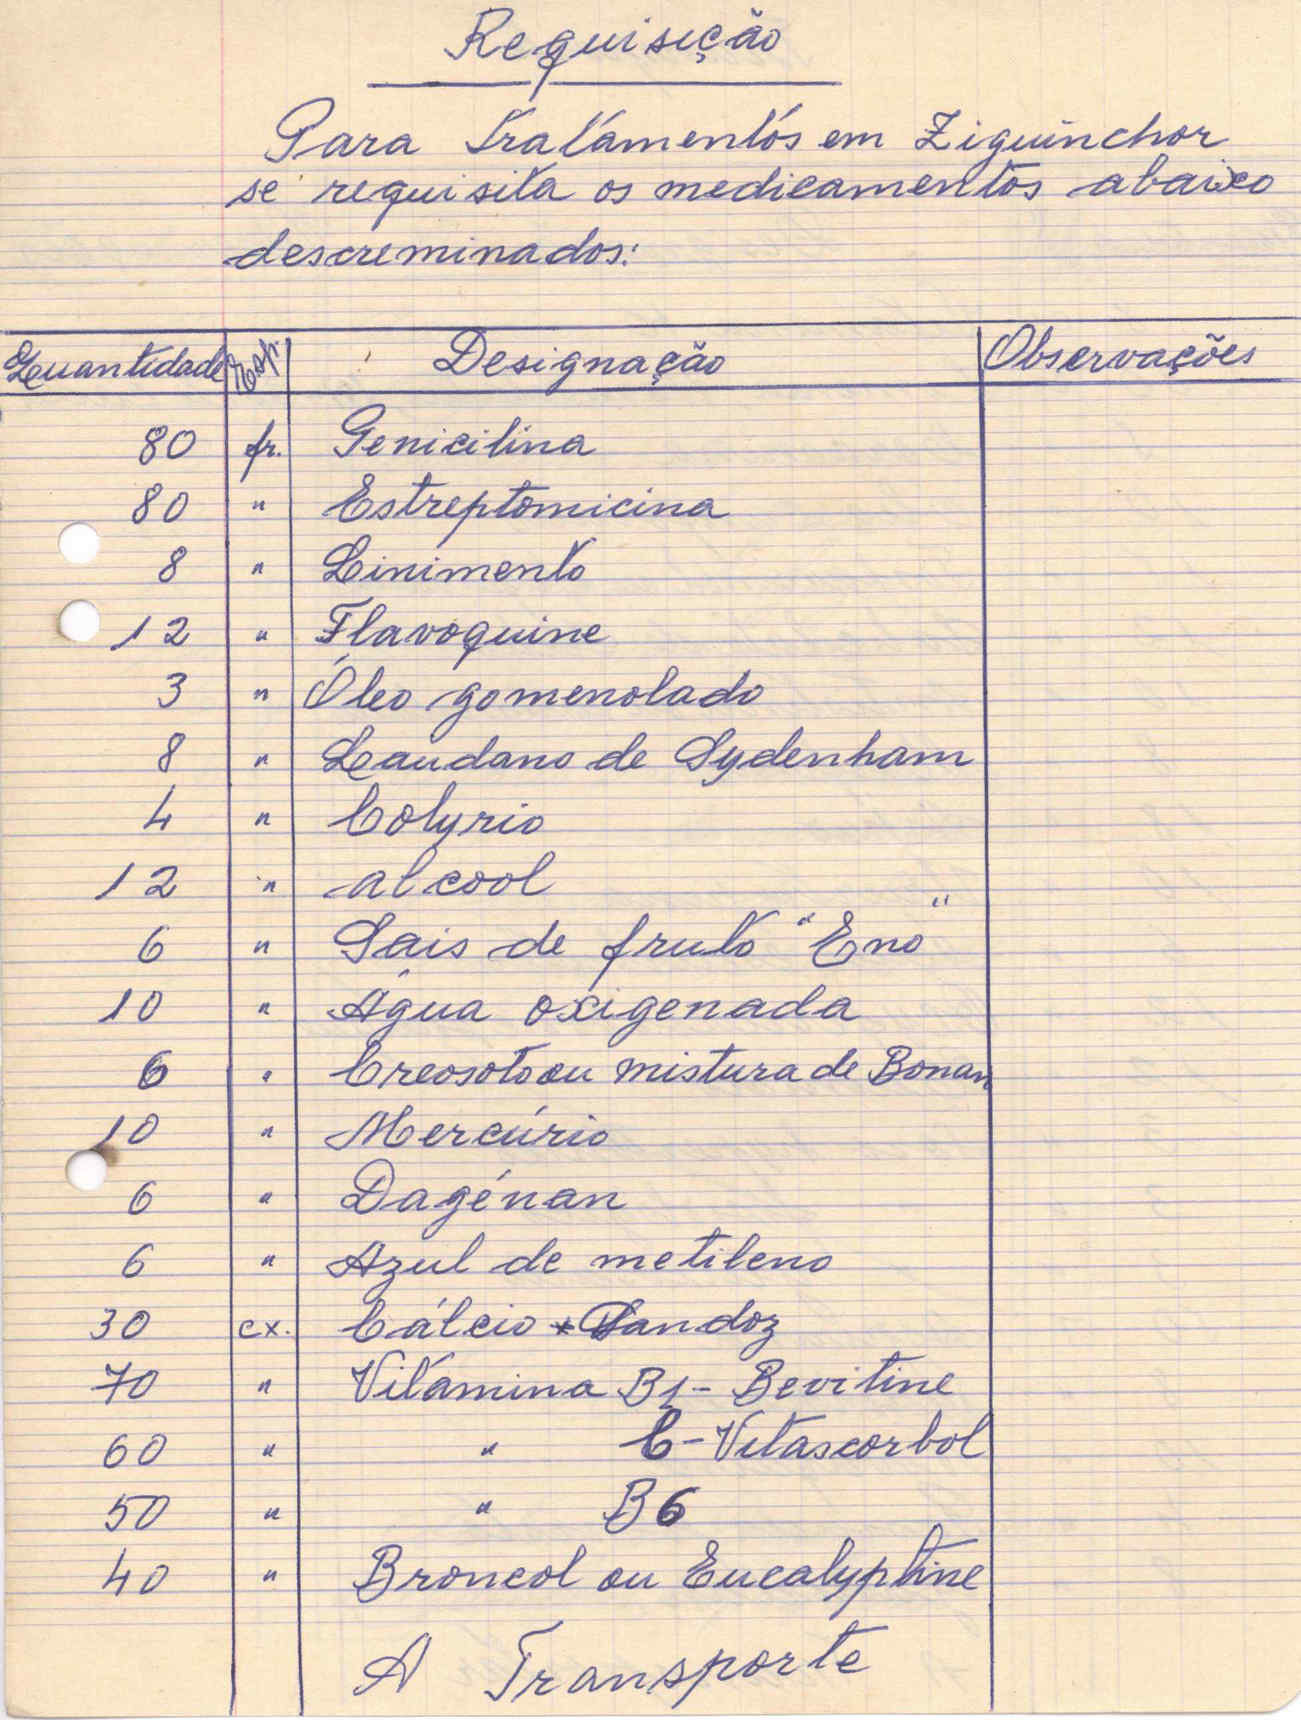 Requisição
Para tratamentos em Ziguinchor
se requisita os medicamentos abaixo
descreminados:
Quantidade Esp. Designação Observações
80 fr. Genicilina
80 " Estreptomicina
8 " Linimento
12 " Flavoquine
3 " Óleo gomenolado
8 " Laudano de Sydenham
4 " Colyrio
12 " alcool
6 " Sais de fruto "Eno"
10 " Água oxigenada
6 " Creosoto ou mistura de Bonan
10 " Mercúrio
6 " Dagénan
6 " Azul de metileno
30 cx. Cálcio * Sandoz
70 " Vitamina B1 - Bevitine
60 " " C - Vitascorbol
50 " " B6
40 " Broncol ou Eucalyptine
A Transporte